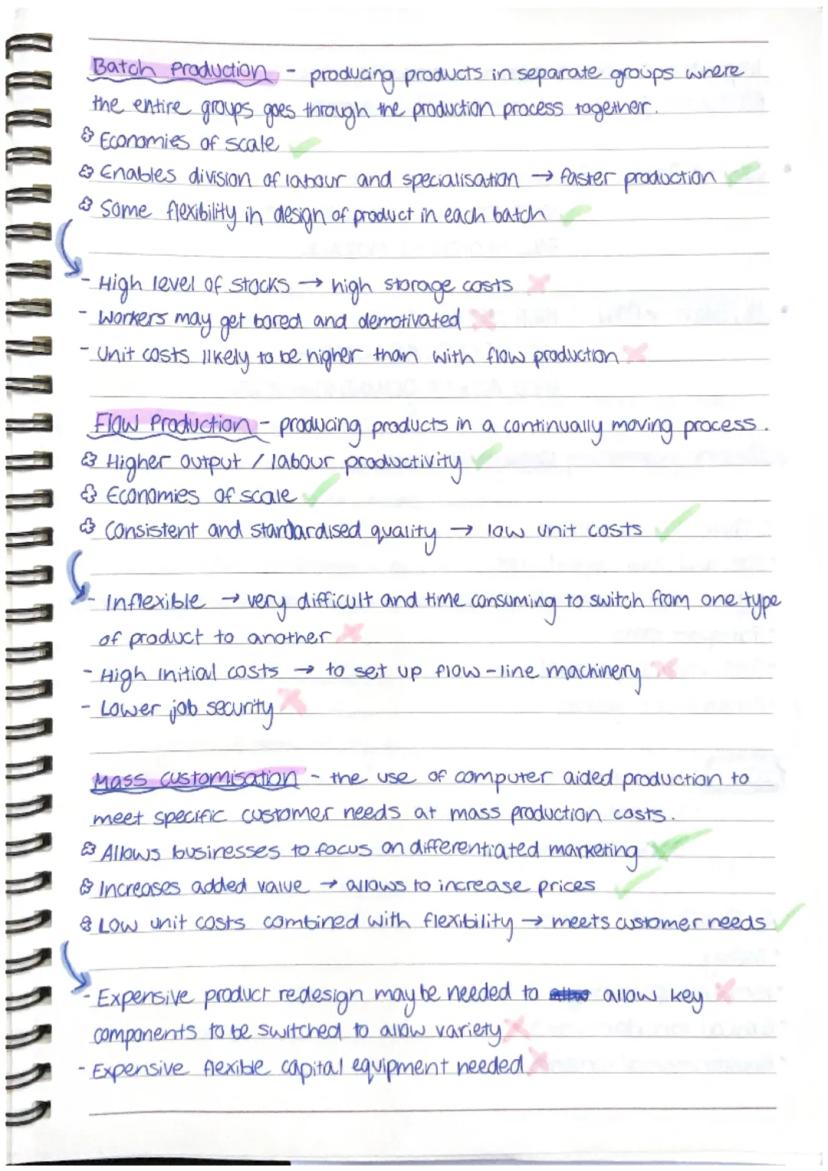 Batch Production - producing products in separate groups where
the entire groups goes through the production process together.
Economies of scale ✓
Enables division of labour and specialisation → faster production ✓
Some flexibility in design of product in each batch ✓
- High level of stocks → high storage costs ✗
- Workers may get bored and demotivated ✗
- Unit costs likely to be higher than with flow production ✗
Flow Production - producing products in a continually moving process.
Higher output / labour productivity ✓
Economies of scale ✓
Consistent and standardised quality → low unit costs ✓
- Inflexible → very difficult and time consuming to switch from one type
of product to another ✗
- High initial costs → to set up flow-line machinery ✗
- Lower job security ✗
Mass customisation - the use of computer aided production to
meet specific customer needs at mass production costs.
Allows businesses to focus on differentiated marketing ✓
Increases added value → allows to increase prices ✓
Low unit costs combined with flexibility → meets customer needs ✓
- Expensive product redesign may be needed to allow key ✗
components to be switched to allow variety ✗
- Expensive flexible capital equipment needed ✗